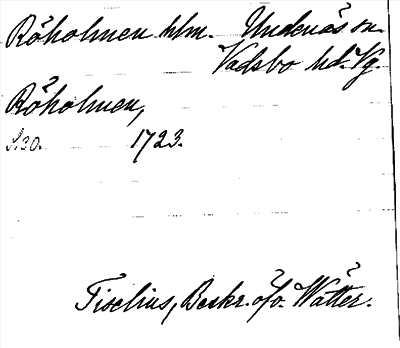 Röholmen hlm. Undenäs sn.
Vadsbo hd. Vg.
Röholmen,
S. 30. 1723.
Tiselius, Beskr. öfv. Wätter.